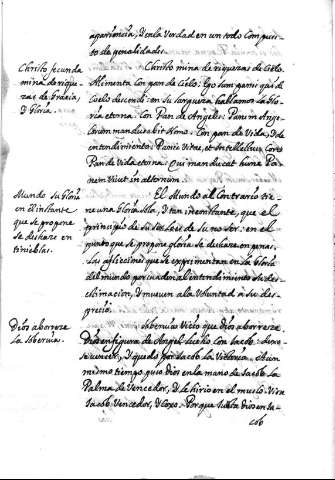 apariencia, y en la Verdad en un todo compues-
to de penalidades.
Christo fecunda
mina de rique-
zas de Gracia,
y Gloria.
Christo mina de riquezas de Cielo.
Alimenta con pan de Cielo: Ego sum panis qui de
Coelo descendi: en su largueza hallamos la Glo-
ria eterna. Con Pan de Angeles: Panem Ange-
lorum manducabit Homo. Con pan de Vida, y de
entendimiento: Panis Vitae, et Intellectus. Con
Pan de Vida eterna: Qui manducat hunc Pa-
nem Vivet in aeternum.
Mundo su Gloria
en el instante
que se propone
se deshaze en
tinieblas.
El Mundo al Contrario tie-
ne una Gloria tan instante, que el
principio de su ser es de su no ser: en el
punto que se propone gloria se deshaze en penas.
Las aflicciones que se experimentan en la Gloria
del mundo persuaden al entendimiento su des-
estimacion, y mueven a la Voluntad a su des-
precio.
Dios aborreze
la Sobervia.
Sobervia Vicio que Dios aborreze.
Dios en figura de Angel lucho con Iacob. Dexo-
se vencer, y quedo por Iacob la Vitoria. A un
mismo tiempo puso Dios en la mano de Iacob la
Palma de Vencedor, y le hirio en el muslo. Vira
Iacob Vencedor, y Coxo. Porque Dios en Ia-
cob